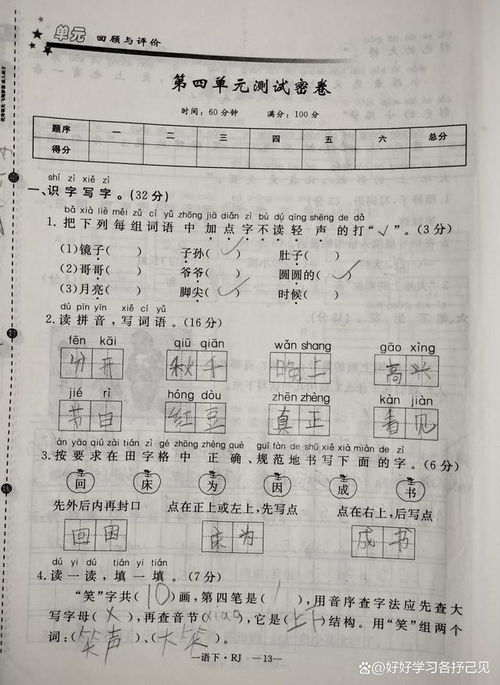 单元 回顾与评价
第四单元测试密卷
时间：60分钟 满分：100分
题序 一 二 三 四 五 六 总分
得分
shí zì xiě zì
一、识字写字。(32分)
bǎ xià liè měi zǔ cí yǔ zhōng jiā diǎn zì bù dú qīng shēng de dǎ
1.把下列每组词语中加点字不读轻声的打“√”。(3分)
(1)镜子( ) 子孙( √ ) 肚子( )
(2)哥哥( ) 爷爷( ) 圆圆的( √ )
(3)月亮( ) 脚尖( √ ) 时候( )
dú pīn yīn xiě cí yǔ
2.读拼音，写词语。(16分)
fēn kāi qiū qiān wǎn shang gāo xìng
分开 秋千 晚上 高兴
jié rì hóng dòu zhēn zhèng kàn jiàn
节日 红豆 真正 看见
àn yāo qiú zài tián zì gé zhōng zhèng què guī fàn de shū xiě xià miàn de zì
3.按要求在田字格中正确、规范地书写下面的字。(6分)
回 床 为 因 成 书
先外后内再封口 点在正上或左上，先写点 点在右上，后写点
回因 床为 成书
dú yi dú tián yi tián
4.读一读，填一填。(7分)
“笑”字共(10)画，第四笔是( )，用音序查字法应先查大
写字母(X)，再查音节(xiao)，它是(上下)结构。用“笑”组两个
词：(笑声)、(大笑)。
—语下·RJ —13—
@好好学习各抒己见